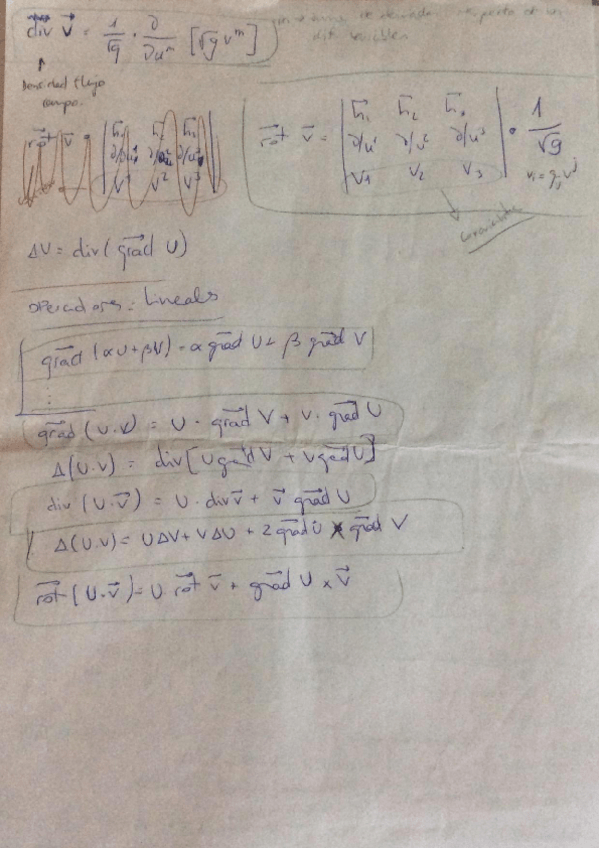 div V⃗ = 1/√g · ∂/∂uᵐ [√g vᵐ]
variables
Densidad flujo
campo.
rot v⃗ = | h̄₁ h̄₂ h̄₃ |
| ∂/∂u¹ ∂/∂u² ∂/∂u³ |
| v¹ v² v³ |
rot v⃗ = | h̄₁ h̄₂ h̄₃ |
| ∂/u¹ ∂/u² ∂/u³ | · 1/√g
| v₁ v₂ v₃ | vᵢ = gᵢⱼ vʲ
covariantes
ΔU = div(grad U)
operadores: Lineales
grad (αU+βV) = α grad U + β grad V
⋮
grad (U·V) = U · grad V + V · grad U
Δ(U·V) = div[U grad V + V grad U]
div (U·v⃗) = U · div v⃗ + v⃗ grad U
Δ(U·V) = UΔV + VΔU + 2 grad U grad V
rot (U·v⃗) = U rot v⃗ + grad U × v⃗